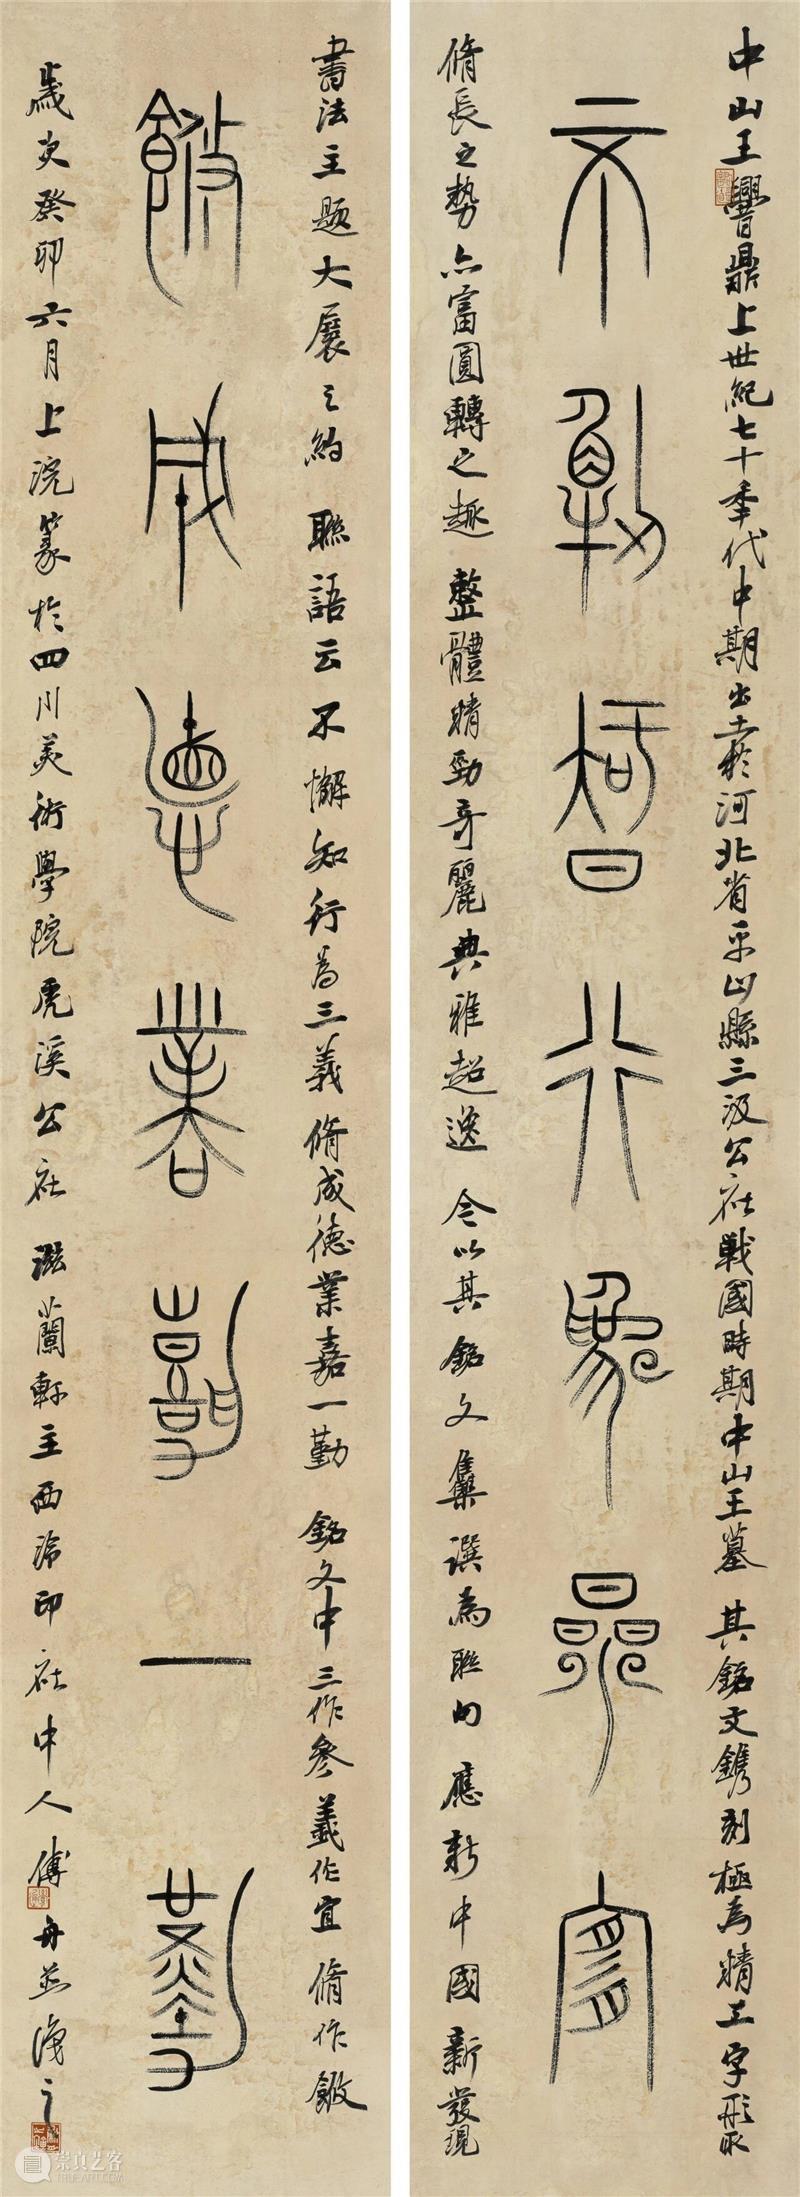 中山王鼎上世紀七十季代中期出土於河北省平山縣三汲公社戰國時期中山王墓其銘文鐫刻極為精工字形取
不懈智行為參宜
脩長之勢亦富圓轉之趣整體勁奇麗典雅超逸今以其銘文集撰為聯句應新中國新發現
書法主题大展之約聯語云不懈知行為三義脩成德業嘉一勤銘文中三作參義作宜脩作
脩成德業嘉一勤
歲次癸卯六月上浣篆於四川美術學院虎溪公社滋蘭軒主西泠印社中人傅舟並識之
崇真艺客